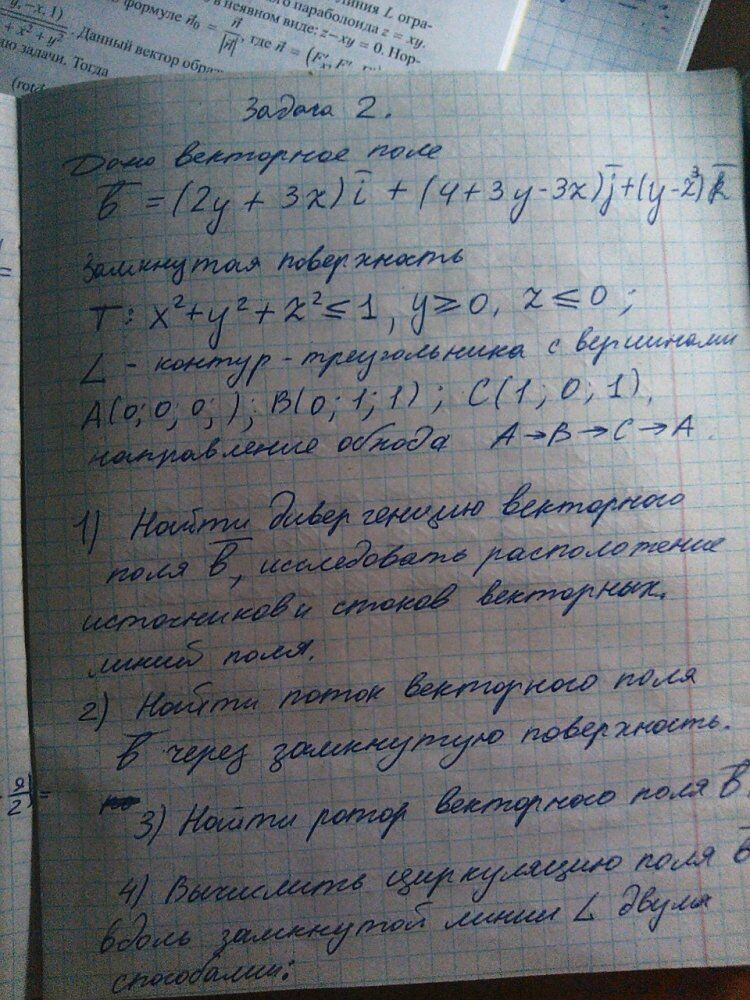 ния L огра-
ого параболоида z = xy.
формуле n⃗₀ = n⃗/|n⃗|, где n⃗ = (F'ₓ, F'
в неявном виде: z−xy = 0. Нор-
y, −x, 1)
+ x² + y²
. Данный вектор обра
ию задачи. Тогда
(rot
Задача 2.
Дано векторное поле
b̅ = (2y + 3x) i̅ + (4+3y-3x) j̅ + (y-z³) k̅
Замкнутая поверхность
T: x²+y²+z² ≤ 1, y ≥ 0, z ≤ 0;
L - контур - треугольника с вершинами
A(0; 0; 0;); B(0; 1; 1); C(1; 0; 1),
направление обхода A→B→C→A.
1) Найти дивергенцию векторного
поля b̅, исследовать расположение
источников и стоков векторных.
линий поля.
2) Найти поток векторного поля
b̅ через замкнутую поверхность.
3) Найти ротор векторного поля b̅.
4) Вычислить циркуляцию поля b̅
вдоль замкнутой линии L двумя
способами: